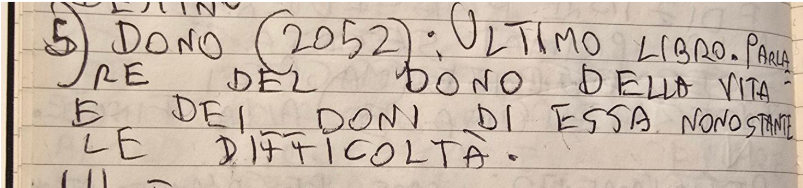 5) DONO (2052): ULTIMO LIBRO. PARLA-
RE DEL DONO DELLA VITA
E DEI DONI DI ESSA NONOSTANTE
LE DIFFICOLTÀ.